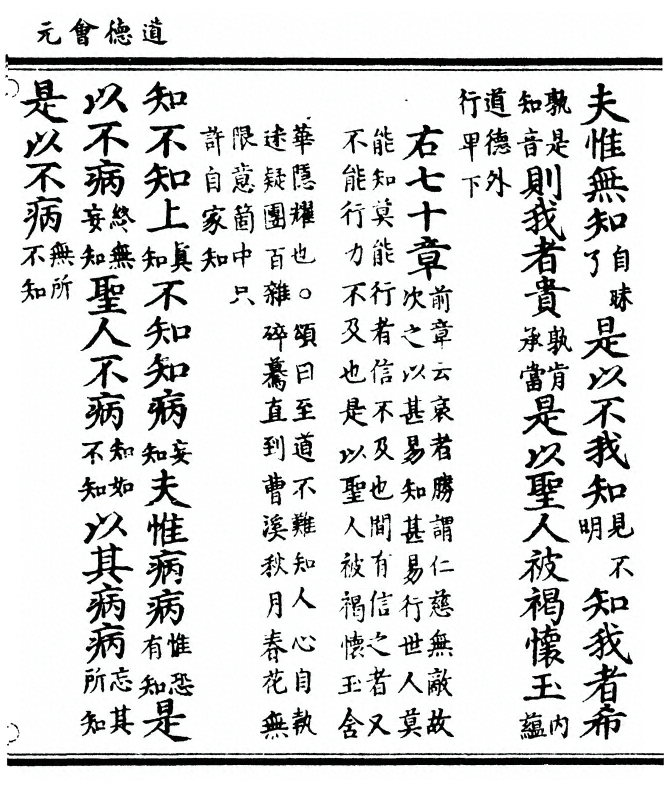 道德會元
夫惟無知自昧了是以不我知見不明知我者希
孰是知音則我者貴孰肯承當是以聖人被褐懷玉內蘊
道德外行甲下
右七十章前章云哀者勝謂仁慈無敵故次之以甚易知甚易行世人莫
能知莫能行者信不及也間有信之者又
不能行力不及也是以聖人被褐懷玉舍
華隱耀也○頌曰至道不難知人心自執
迷疑團百雜碎驀直到曹溪秋月春花無
限意箇中只
許自家知
知不知上真知不知知病妄知夫惟病病惟恐有知是
以不病終無妄知聖人不病知如不知以其病病忘其所知
是以不病無所不知